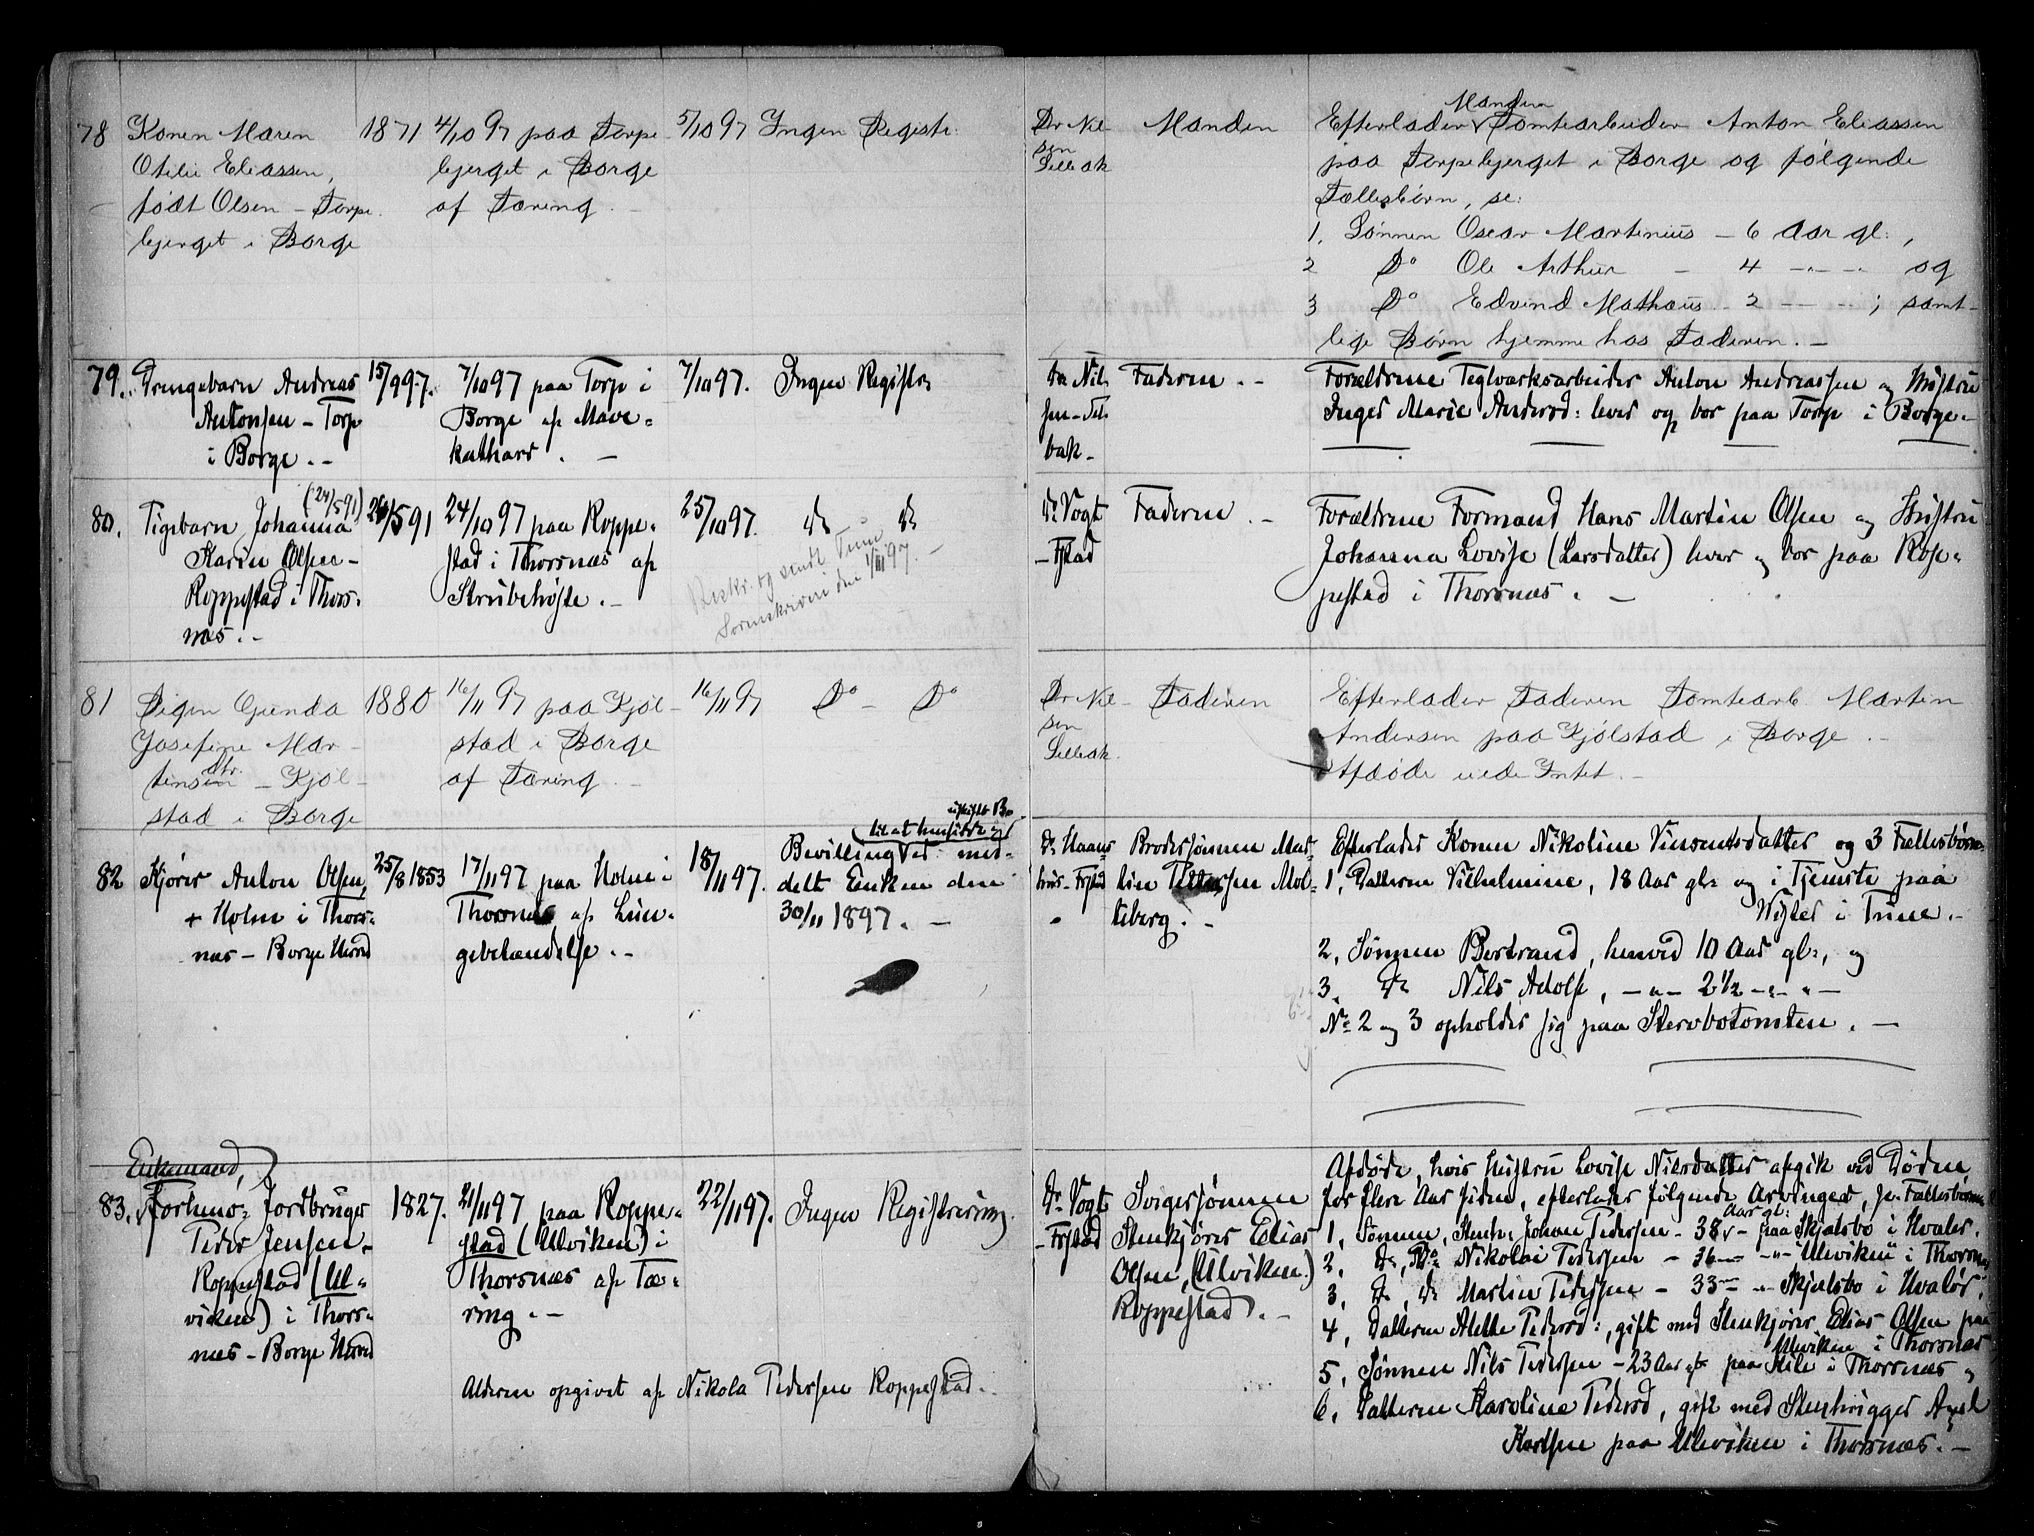 78 Konen Maren
Otilie Eliassen,
født Olsen – Torpe
bjerget i Borge
1871
4/10 97 paa Torpe
bjerget i Borge
af Tæring. –
5/10 97
Ingen Registr:
Dr Nil-
sen
Selbak
Manden
Manden
Efterlader Tomtearbeider Anton Eliassen
paa Torpebjerget i Borge og følgende
Fællesbørn, se:
1, Sønnen Oscar Martinius – 6 Aar gl:,
2 Do Ole Arthur – 4 –"– –"– og
3 Do Edvind Mathæus – 2 – – – –; samt-
lige Børn hjemme hos Faderen. –
79. Drengebarn Andreas
Antonsen – Torp
i Borge. –
15/9 97.
7/10 97 paa Torp i
Borge af Mave-
kathar. –
7/10 97.
Ingen Registr:
Dr. Nil-
sen – Sel-
bak –
Faderen. –
Forældrene Teglværksarbeider Anton Andreassen og Hustru
Inger Marie Andersd: lever og bor paa Torp i Borge. –
80. Pigebarn Johanna
(24/5 91)
Karin Olsen –
Roppestad i Thors-
næs. –
24/5 91
24/10 97 paa Roppe-
stad i Thorsnæs af
Strubehoste. –
25/10 97.
do do
Beskr. og sendt Tune
Sorenskriveri den 1/11 97 –
Dr. Vogt
– Fstad
Faderen. –
Forældrene Formand Hans Martin Olsen og Hustru
Johanna Lovise (Larsdatter) lever og bor paa Rop-
pestad i Thorsnæs. –
81 Pigen Gunda
Josefine Mar-
tinsen dtr. – Kjøl-
stad i Borge
1880
16/11 97 paa Kjøl-
stad i Borge
af Tæring. –
16/11 97
Do – Do
Dr Nil-
sen
Selbak.
Faderen
Efterlader Faderen Tomtearb. Martin
Andersen paa Kjølstad i Borge. –
Afdøde eiede Intet. –
82 Kjører Anton Olsen,
+ Holm i Thors-
næs – Borge Herred
25/8 1853
17/11 97 paa Holm i
Thorsnæs af Lun-
gebetændelse. –
18/11 97.
uskiftet Bo
til at hensidde i
Bevilling ved med-
delt Enken den
30/11 1897. –
Dr. Haans-
hus – Fstad
Brodersønnen Mar-
tin Pettersen Mol-
teberg. –
Efterlader Konen Nikoline Vinsentsdatter og 3 Fællesbørn:
1, Datteren Vilhelmine, 18 Aar gl: og i Tjeneste paa
Vister i Tune. –
2, Sønnen Bertrand, henved 10 Aar gl:, og
3, do Nils Adolf, –"– 2 1/2 –"– "–
No 2 og 3 opholder sig paa Stervbotomten. –
Enkemand,
83. Forhenv: Jordbruger
Peder Jensen –
Roppestad (Ul-
viken) i Thors-
næs – Borge Herred
1827.
21/11 97 paa Roppe-
stad (Ulviken) i
Thorsnæs af Tæ-
ring. –
22/11 97.
Ingen Registrering.
Alderen opgivet af Nikola Pedersen Roppestad. –
Dr. Vogt
– Fstad
Svigersønnen
Stenkjører Elias
Olsen, (Ulviken)
Roppestad. –
Afdøde, hvis Hustru Lovise Nilsdatter afgik ved Døden
for flere Aar siden, efterlader følgende Arvinger, se. Fællesbørnene
Aar gl:
1, Sønnen, Stenh: Johan Pedersen – 38 – paa Skjælsbo i Hvaler.
2, do, Do Nikolai Pedersen – 36 – –"– Ulviken i Thorsnæs
3, do, do Martin Pedersen – 33 – " – Skjælsbo i Hvaler.
4, Datteren Alette Pedersd:, gift med Stenkjører Elias Olsen paa
Ulviken i Thorsnæs
5, Sønnen Nils Pedersen – 23 Aar gl: paa Kile i Thorsnæs og
6, Datteren Karoline Pedersd, gift med Stenhugger Axel
Karlsen paa Ulviken i Thorsnæs. –